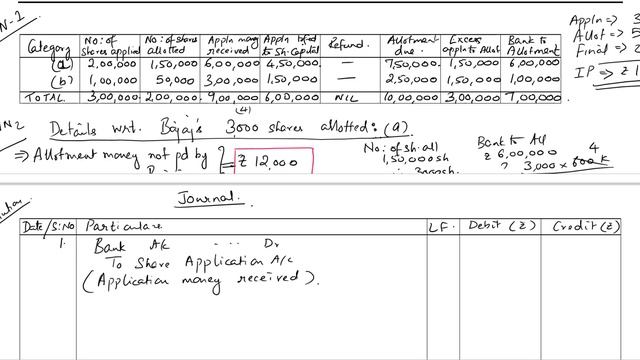 N-1
Appln => 3
Allot => 5
Final => 2
IP => ₹ 1
Category No: of shares applied No: of shares allotted Appln money received Appln tfrd to Sh. Capital Refund. Allotment due. Excess appln to Allot Bank to Allotment
(a) 2,00,000 1,50,000 6,00,000 4,50,000 — 7,50,000 1,50,000 6,00,000
(b) 1,00,000 50,000 3,00,000 1,50,000 — 2,50,000 1,50,000 1,00,000
TOTAL 3,00,000 2,00,000 9,00,000 6,00,000 NIL 10,00,000 3,00,000 7,00,000
(4)
WN2 Details wrt. Bajaj's 3,000 shares allotted: (a)
=> Allotment money not pd by = ₹ 12,000
No: of sh. all
1,50,000 sh
Bank to All
₹ 6,00,000
? 3,000 × 4
Journal.
Date/S:No Particulars LF. Debit (₹) Credit (₹)
1. Bank A/c ... Dr
To Share Application A/c
(Application money received).